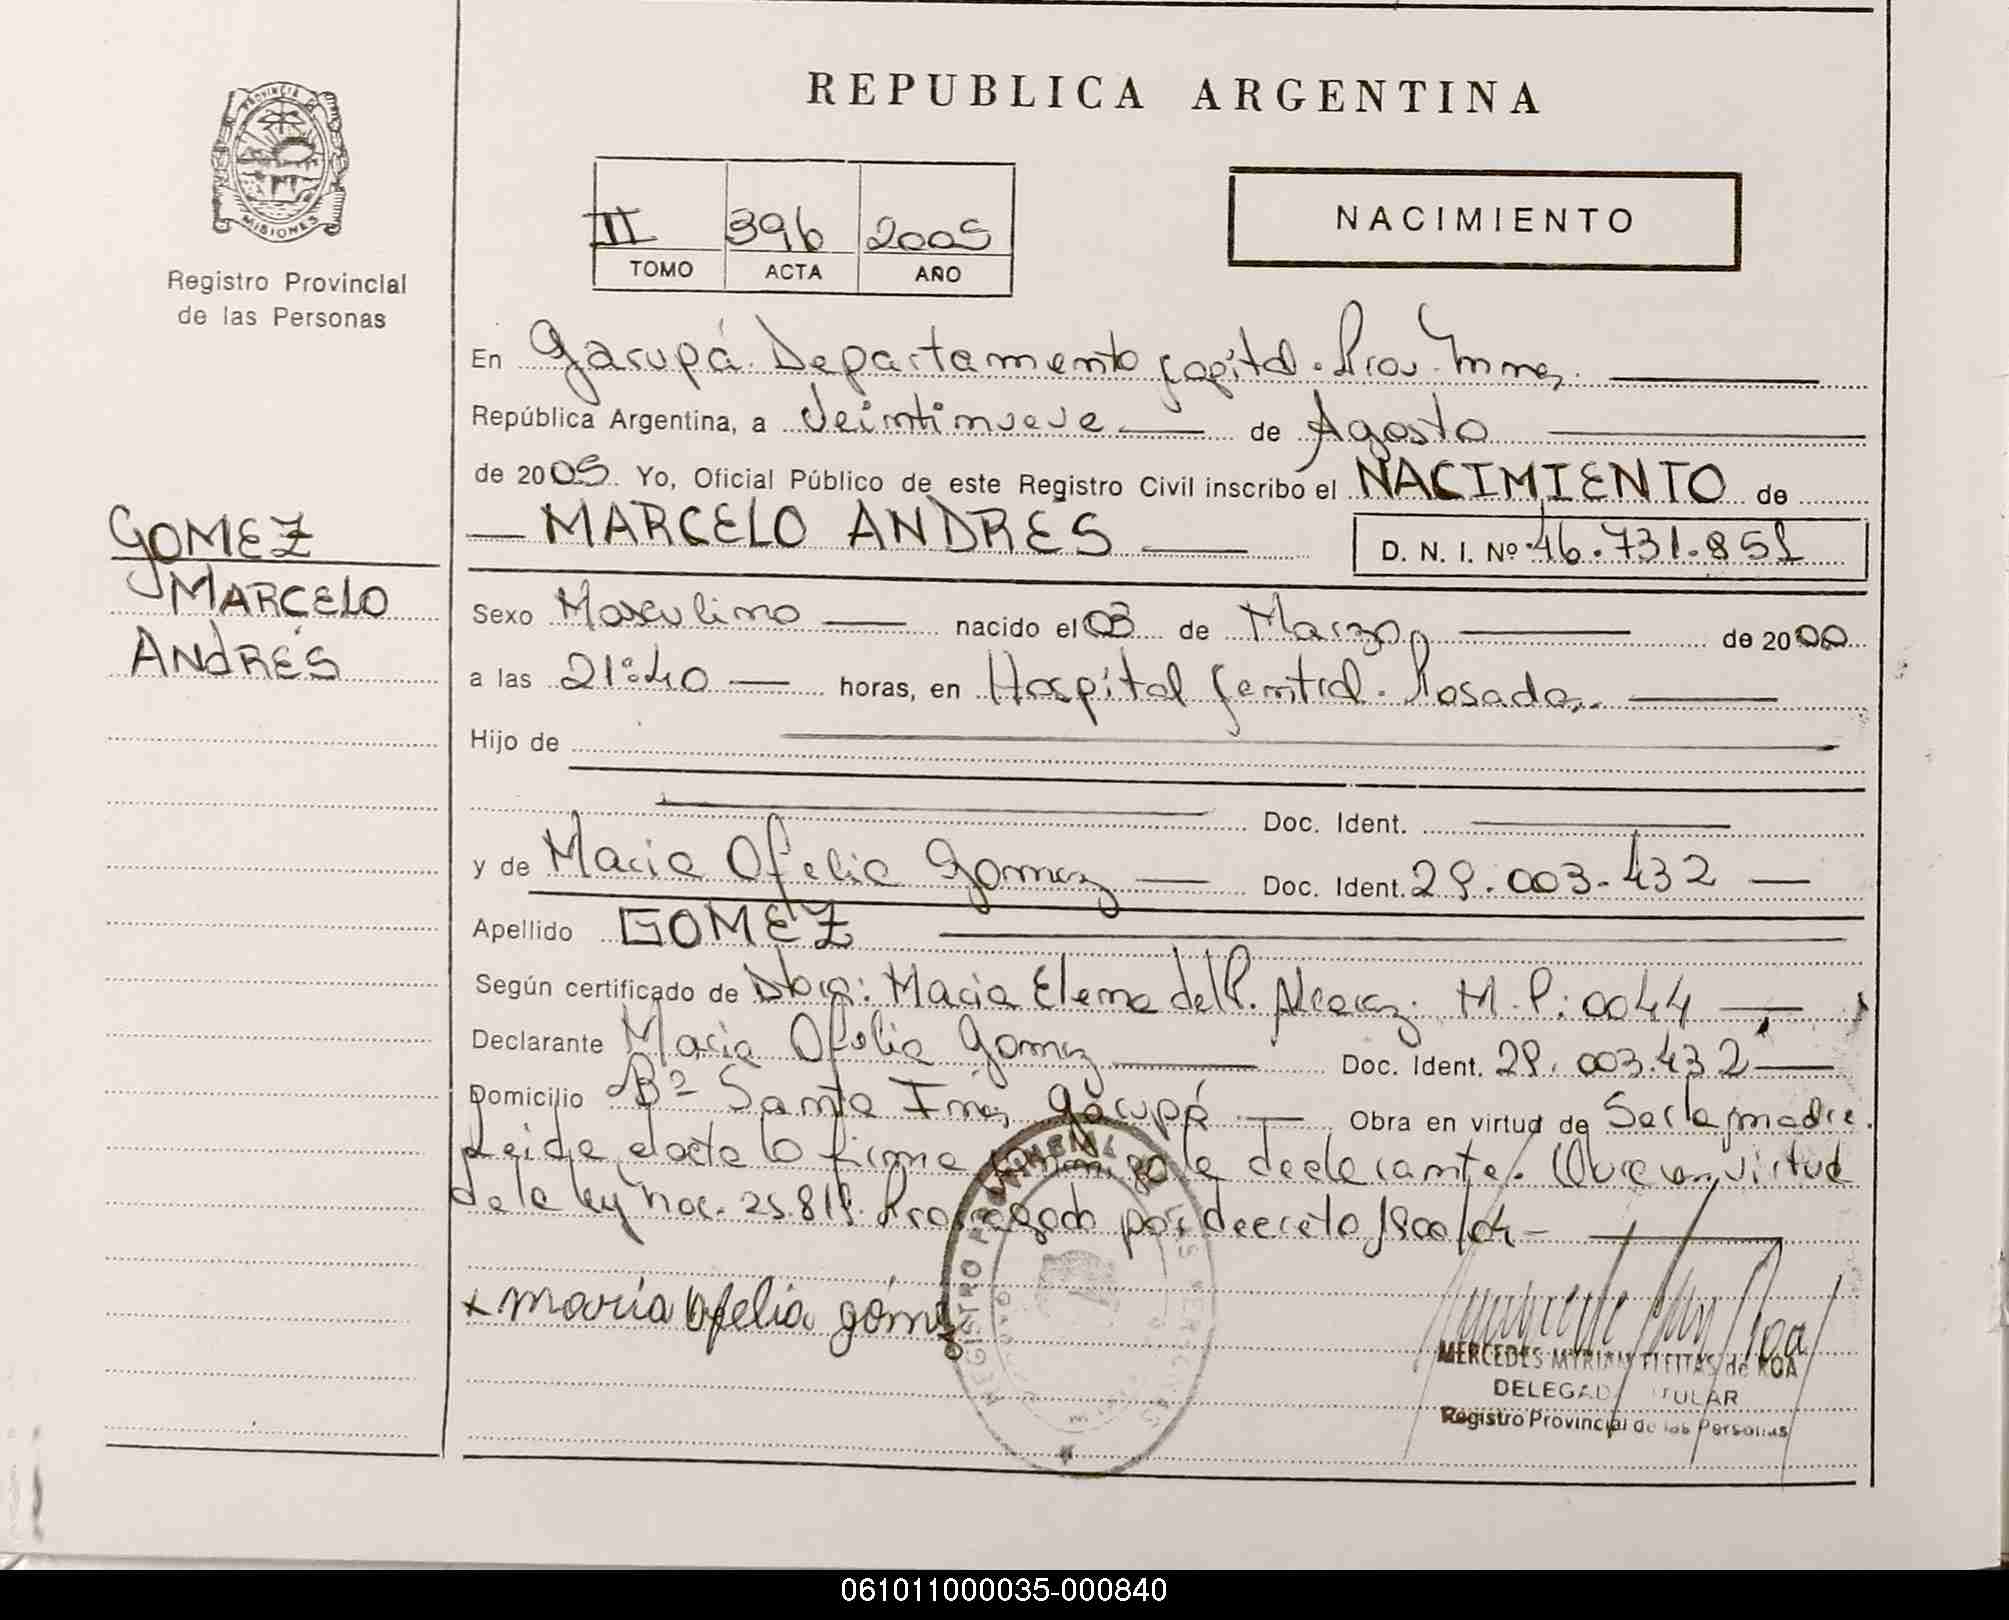 REPUBLICA ARGENTINA
PROVINCIA DE
MISIONES
Registro Provincial
de las Personas
II 396 2005
TOMO ACTA AÑO
NACIMIENTO
En Garupá. Departamento Capital. Prov. Mnes.
República Argentina, a Veintinueve de Agosto
de 2005. Yo, Oficial Público de este Registro Civil inscribo el NACIMIENTO de
MARCELO ANDRES D. N. I. Nº 46.731.851
GOMEZ
MARCELO
ANDRÉS
Sexo Masculino nacido el 03 de Marzo de 2000
a las 21:40 horas, en Hospital Central. Posadas.
Hijo de
Doc. Ident.
y de Maria Ofelia Gomez Doc. Ident. 29.003.432
Apellido GOMEZ
Según certificado de Dbra: Maria Elena del P. Alcaraz. M.P: 0044
Declarante Maria Ofelia Gomez Doc. Ident. 29.003.432
Domicilio Bº Santa Ines, Garupá Obra en virtud de Ser la madre.
Leida el acta la firma conmigo la declarante. Obra en virtud
de la ley nac. 25.819. Prorrogado por decreto 1800/04
x maría ofelia góm
MERCEDES MYRIAM FLEITAS de ROA
DELEGADA TITULAR
Registro Provincial de las Personas
061011000035-000840